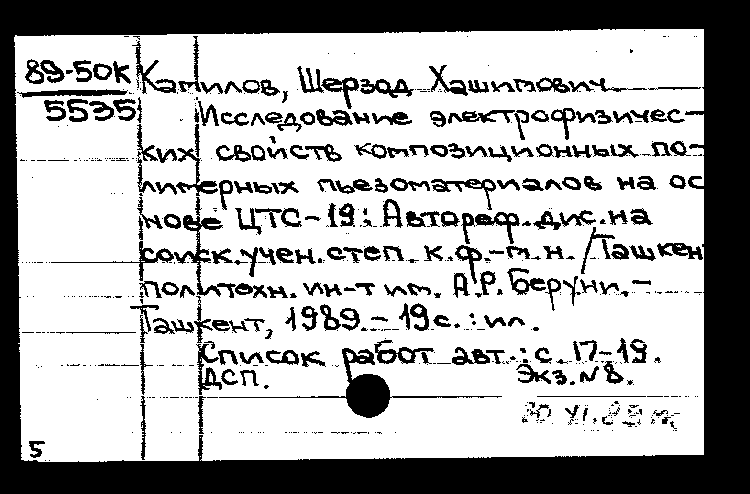 89-50к
5535
Камилов, Шерзод Хашимович.
Исследование электрофизичес-
ких свойств композиционных по-
лимерных пьезоматериалов на ос
нове ЦТС-19: Автореф. дис. на
соиск. учен. степ. к.ф.-м.н. / Ташкен
политехн. ин-т им. А.Р. Беруни. -
Ташкент, 1989. - 19 с. : ил.
Список работ авт.: с. 17-19.
ДСП. Экз. N 8.
30 XI. 89
5